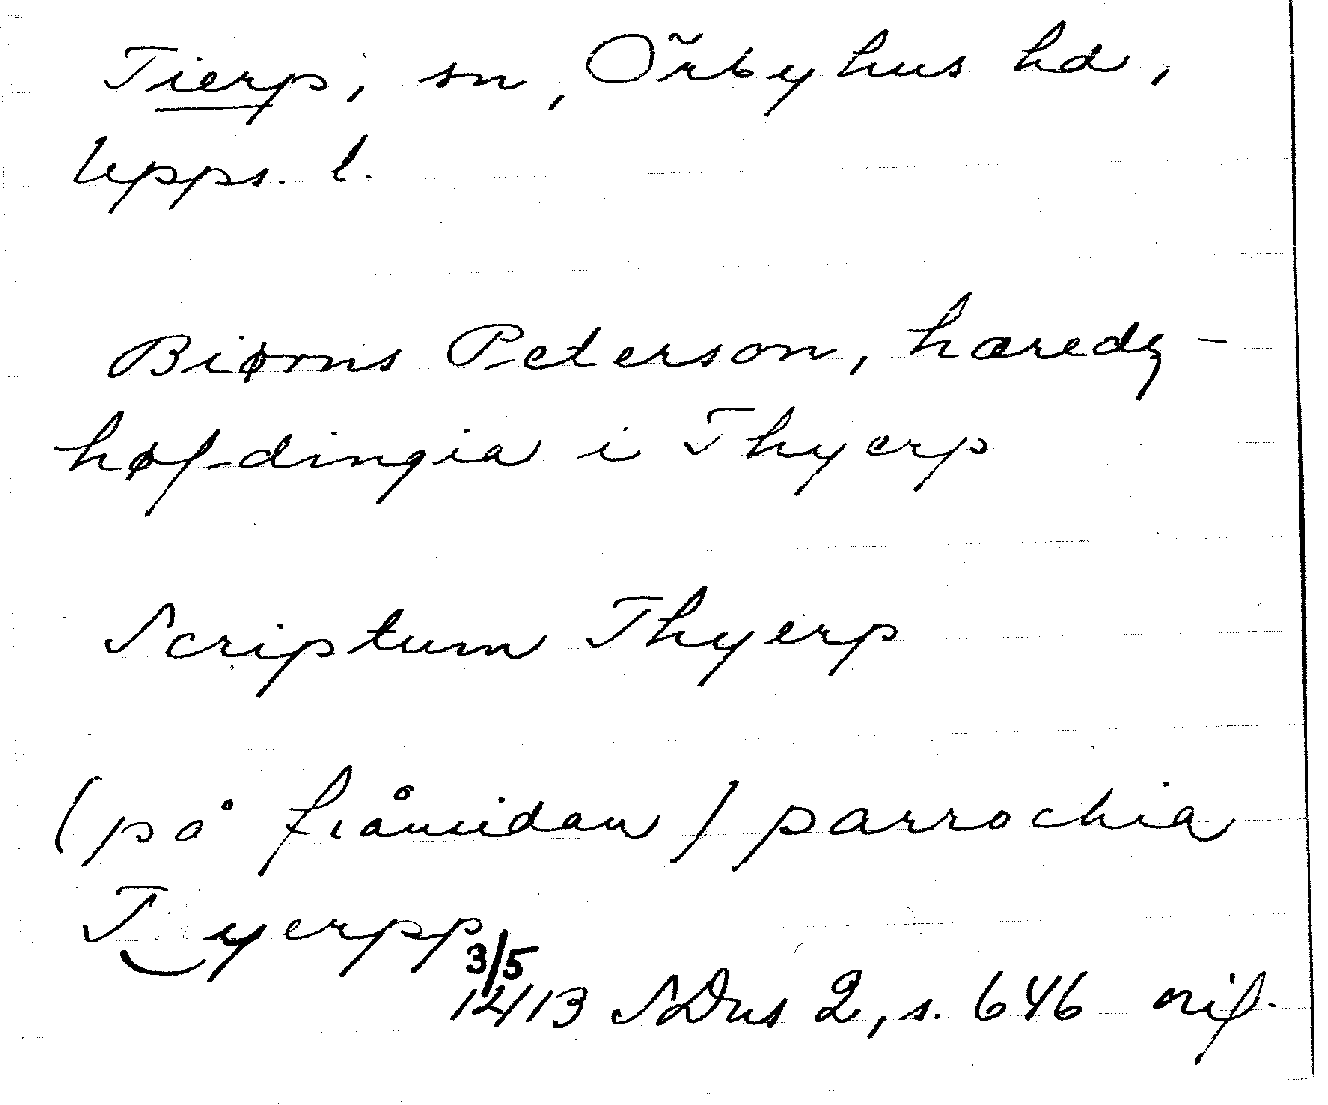 Tierp, sn, Örbyhus hd,
Upps. l.
Biørns Peterson, hæredz-
høfdingia i Thyerp
Scriptum Thyerp
(på frånsidan) parrochia
Tyerpp
3/5
1413 SDns 2, s. 646 orig.